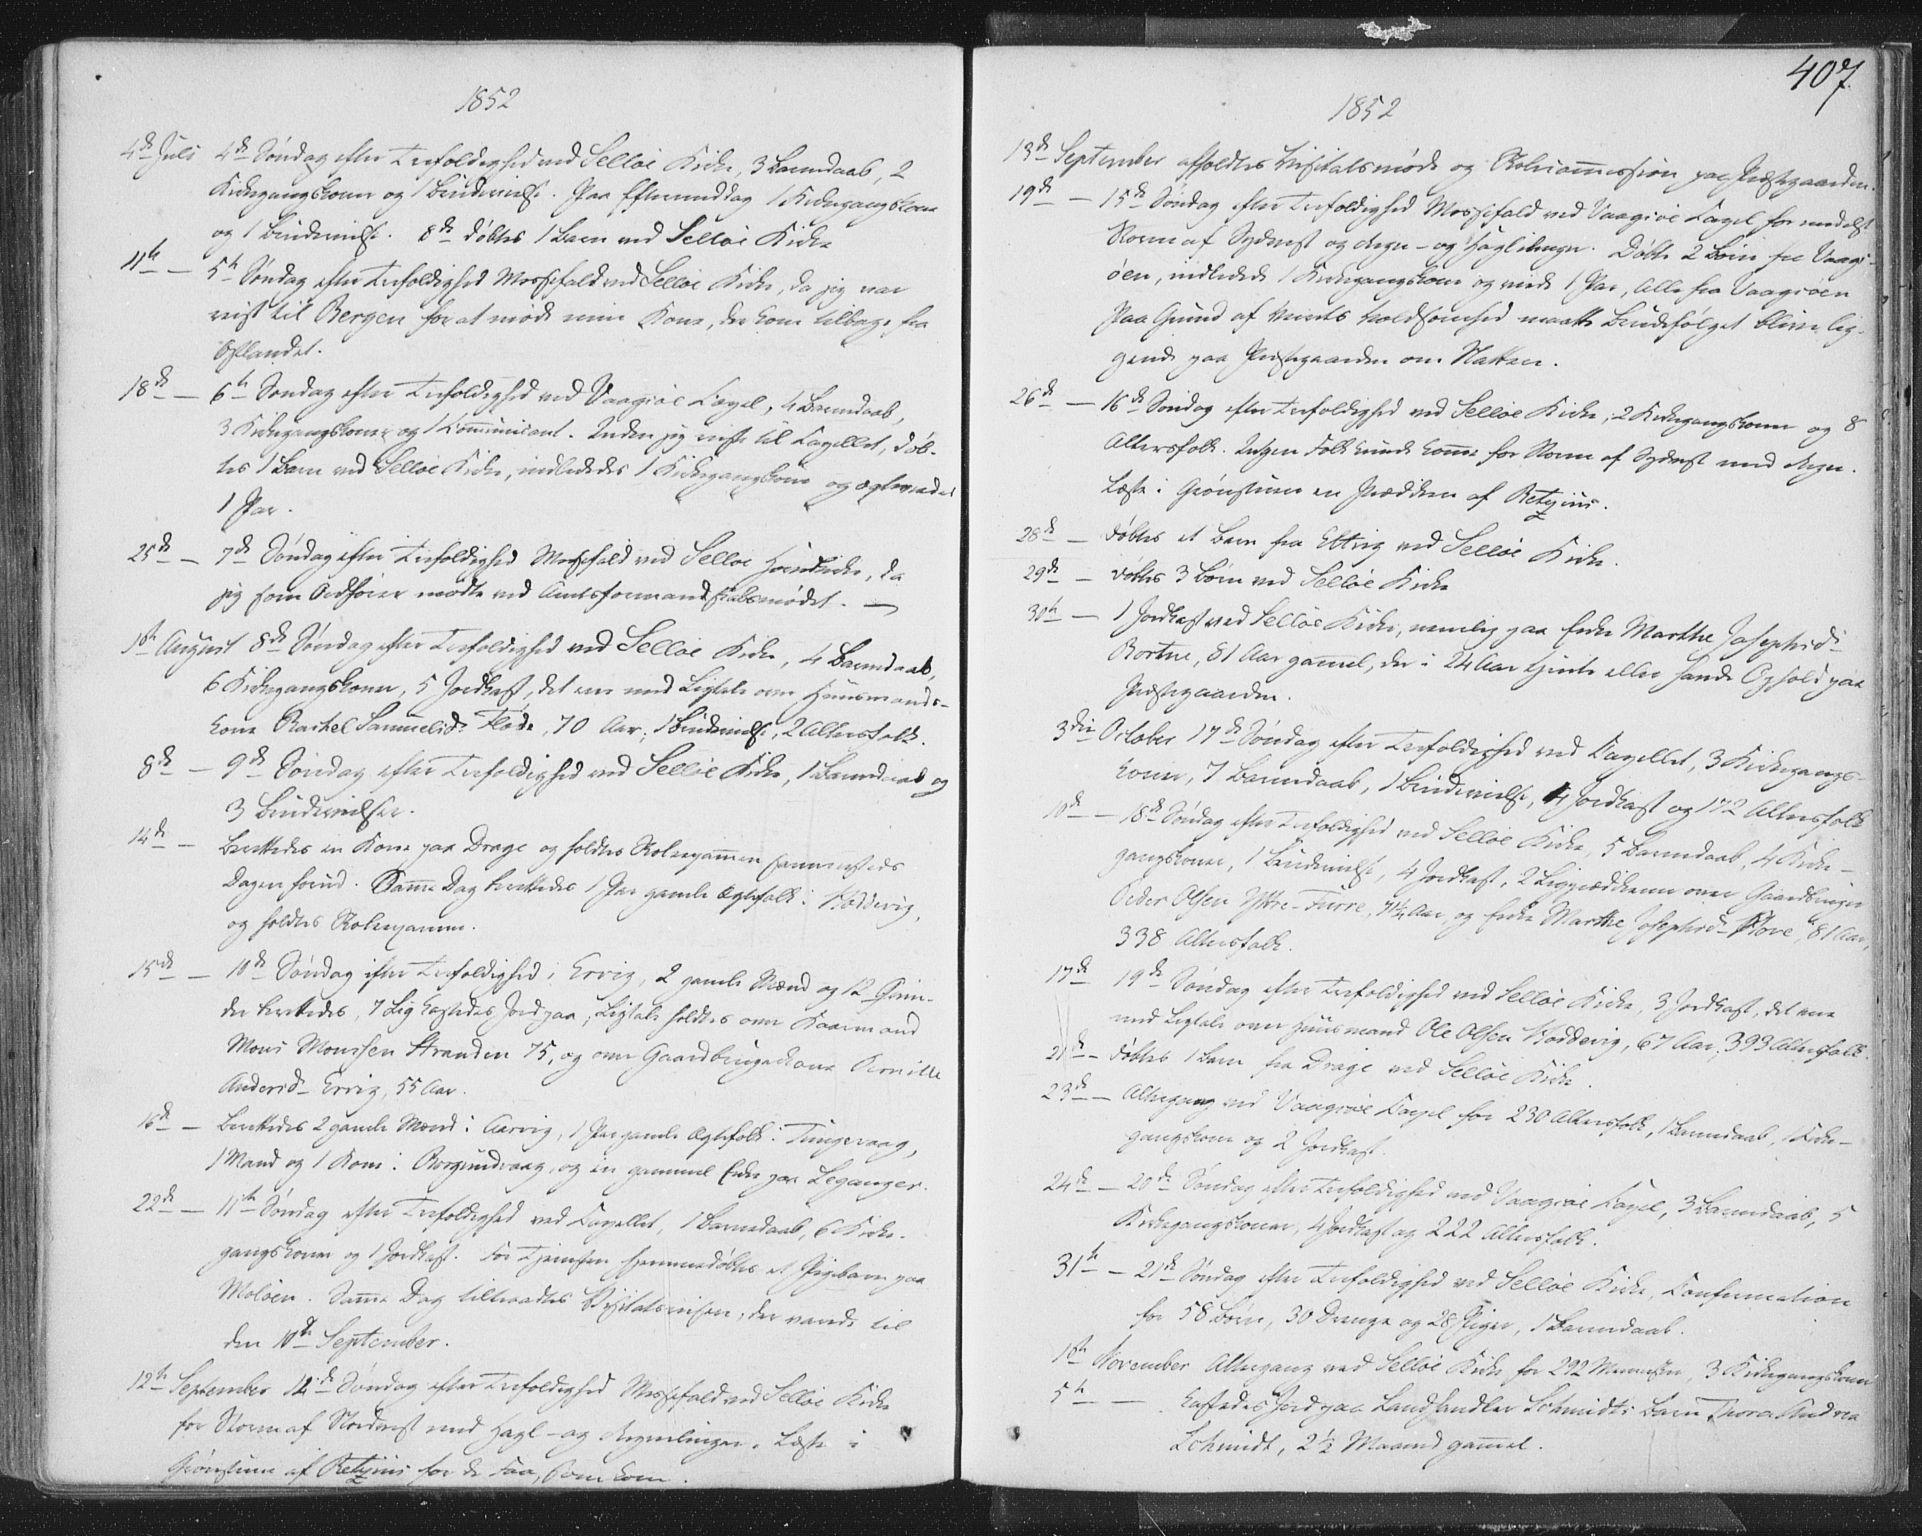 1852
4de Juli 4de Søndag efter Trefoldighed ved Selløe Kirke, 3 Barnedaab, 2
Kirkegangskoner og 1 Brudevielse. Paa Eftermiddag 1 Kirkegangskone
og 1 Brudevielse. 8de døbtes 1 Barn ved Selløe Kirke
11te — 5te Søndag efter Trefoldighed Messefald ved Selløe Kirke, da jeg var
reist til Bergen for at møde min Kone, der kom tilbage fra
Østlandet.
18de — 6te Søndag efter Trefoldighed ved Vaagsøe Capel, 4 Barnedaab,
3 Kirkegangskoner og 1 Communicant. Inden jeg reiste til Capellet, døb-
tes 1 Barn ved Selløe Kirke, indlededes 1 Kirkegangskone og ægteviedes
1 Par.
25de — 7de Søndag efter Trefoldighed Messefald ved Selløe Hovedkirke, da
jeg som Ordfører mødte ved Amtsformandskabsmødet. —
1ste August 8de Søndag efter Trefoldighed ved Selløe Kirke, 4 Barnedaab,
6 Kirkegangskoner, 5 Jordkast, det ene med Ligtale over Huusmands-
kone Rachel Samuelsd. Fløde, 70 Aar, 1 Brudevielse, 2 Altersfolk.
8de — 9de Søndag efter Trefoldighed ved Selløe Kirke, 1 Barnedaab og
3 Brudevielser.
14de — Berettedes en Kone paa Drage og holdtes Skoleexamen sammesteds
Dagen forud. Samme Dag berettedes 1 Par gamle Ægtefolk i Hoddevig,
og holdtes Skoleexamen.
15de — 10de Søndag efter Trefoldighed i Ervig, 2 gamle Mænd og 12 Qvin-
der berettedes, 7 Lig kastedes Jord paa; Ligtale holdtes over Kaarmand
Mons Monssen Stranden 75, og over Gaardbrugerkone Pernille
Andersd. Ervig, 55 Aar.
16de — Berettedes 2 gamle Mænd i Aarvig, 1 Par gamle Ægtefolk i Tungevaag,
1 Mand og 1 Kone i Borgundvaag, og en gammel Enke paa Leganger.
22de — 11te Søndag efter Trefoldighed ved Capellet, 1 Barnedaab, 6 Kirke-
gangskoner og 1 Jordkast. For Tjenesten hjemmedøbtes et Pigebarn paa
Moløen. Samme Dag tiltraadtes Visitatsreisen, der varede til
den 10de September.
12te September 14de Søndag efter Trefoldighed Messefald ved Selløe Kirke
for Storm af Nordvest med Hagl- og Regnelinger. Læste i
Grønstuen af Retzius for de Faa, som kom.
407.
1852
13de September afholdtes Visitatsmøde og Skolecommission paa Præstegaarden.
19de — 15de Søndag efter Trefoldighed Messefald ved Vaagsøe Capel formedelst
Storm af Sydvest og Regn- og Haglelinger. Døbte 2 Børn fra Vaags-
øen, indledede 1 Kirkegangskone og viede 1 Par, Alle fra Vaagsøen
Paa Grund af Veirets Voldsomhed maatte Brudefølget blive lig-
gende paa Præstegaarden om Natten.
26de — 16de Søndag efter Trefoldighed ved Selløe Kirke, 2 Kirkegangskoner og 8
Altersfolk. Ingen Folk kunde komme for Storm af Sydvest med Regn.
Læste i Grønstuen en Prædiken af Retzius.
28de — døbtes et Barn fra Eltvig ved Selløe Kirke.
29de — døbtes 3 Børn ved Selløe Kirke
30te — 1 Jordkast ved Selløe Kirke, nemlig paa Enke Marthe Josephsd.
Bortne, 81 Aar gammel, der i 24 Aar tjente eller havde Ophold paa
Præstegaarden.
3die October 17de Søndag efter Trefoldighed ved Capellet, 3 Kirkegangs-
koner, 7 Barnedaab, 1 Brudevielse, 4 Jordkast og 172 Altersfolk
10de — 18de Søndag efter Trefoldighed ved Selløe Kirke, 5 Barnedaab, 4 Kirke-
gangskoner, 1 Brudevielse, 4 Jordkast, 2 Ligprædikener over Gaardbruger
Peder Olsen Yttre-Furre, 71½ Aar, og Enke Marthe Josephsd. 81 Aar,
338 Altersfolk.
17de 19de Søndag efter Trefoldighed ved Selløe Kirke, 3 Jordkast, det ene
med Ligtale over Huusmand Ole Olsen Hoddevig, 67 Aar; 393 Altersfolk.
21de — døbtes 1 Barn fra Drage ved Selløe Kirke.
23de — Altergang ved Vaagsøe Capel for 230 Altersfolk, 1 Barnedaab, 1 Kirke-
gangskone og 2 Jordkast.
24de — 20de Søndag efter Trefoldighed ved Vaagsøe Capel, 3 Barnedaab, 5
Kirkegangskoner, 4 Jordkast og 222 Altersfolk.
31te — 21de Søndag efter Trefoldighed ved Selløe Kirke, Confirmation
for 58 Børn, 30 Drenge og 28 Piger, 1 Barnedaab.
1ste November Altergang ved Selløe Kirke for 292 Mennesker, 3 Kirkegangskoner
5te — Kastedes Jord paa Landhandler Schmidts Barn Thora Andrea
Schmidt, 2½ Maaned gammel.